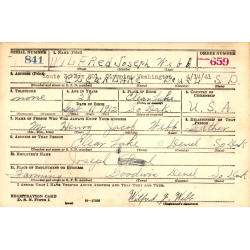 SERIAL NUMBER 1. NAME (Print) ORDER NUMBER
841 WILFRED Joseph Webb 659
2. ADDRESS (Print)
Route 2 Box 201, Olympia, Washington 4/14/41
3. TELEPHONE 4. AGE IN YEARS 5. PLACE OF BIRTH 6. COUNTRY OF CITIZENSHIP
none Clear Lake
1912 So Dak U.S.A.
7. NAME OF PERSON WHO WILL ALWAYS KNOW YOUR ADDRESS 8. RELATIONSHIP OF THAT PERSON
Mr. Henry Jacob Webb Father
9. ADDRESS OF THAT PERSON
Clear Lake Deuel So Dak
10. EMPLOYER'S NAME
Joseph
11. PLACE OF EMPLOYMENT OR BUSINESS
Farming Goodwin Deuel So Dak
I AFFIRM THAT I HAVE VERIFIED ABOVE ANSWERS AND THAT THEY ARE TRUE.
REGISTRATION CARD
D. S. S. Form 1 Wilfred J. Webb